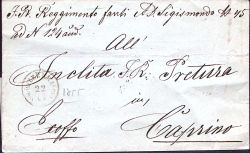 I. R. Reggimento fanti A. D. Sigismondo N 45
ad N 124
All'
Inclita I. R. Pretura
in
Caprino
Ex offo
1855